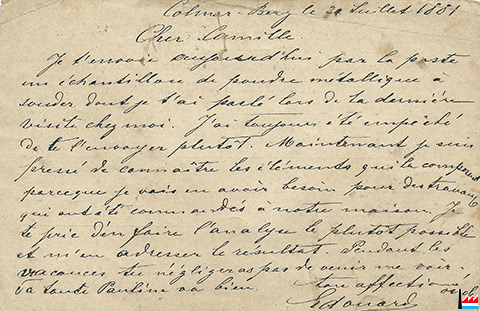 Colmar-Berg le 30 Juillet 1881
Cher Camille
Je t'envoie aujourd'hui par la poste
un échantillon de poudre métallique à
souder dont je t'ai parlé lors de ta dernière
visite chez moi. J'ai toujours été empêché
de te l'envoyer plutôt. Maintenant je suis
pressé de connaître les éléments qui la composent
parceque je vais en avoir besoin pour des travaux
qui ont été commandés à notre maison. Je
te prie d'en faire l'analyse le plutot possible
et m'en adresser le resultat. Pendant les
vacances tu négligeras pas de venir me voir.
Ta tante Pauline va bien.
ton affectionné
Edouard